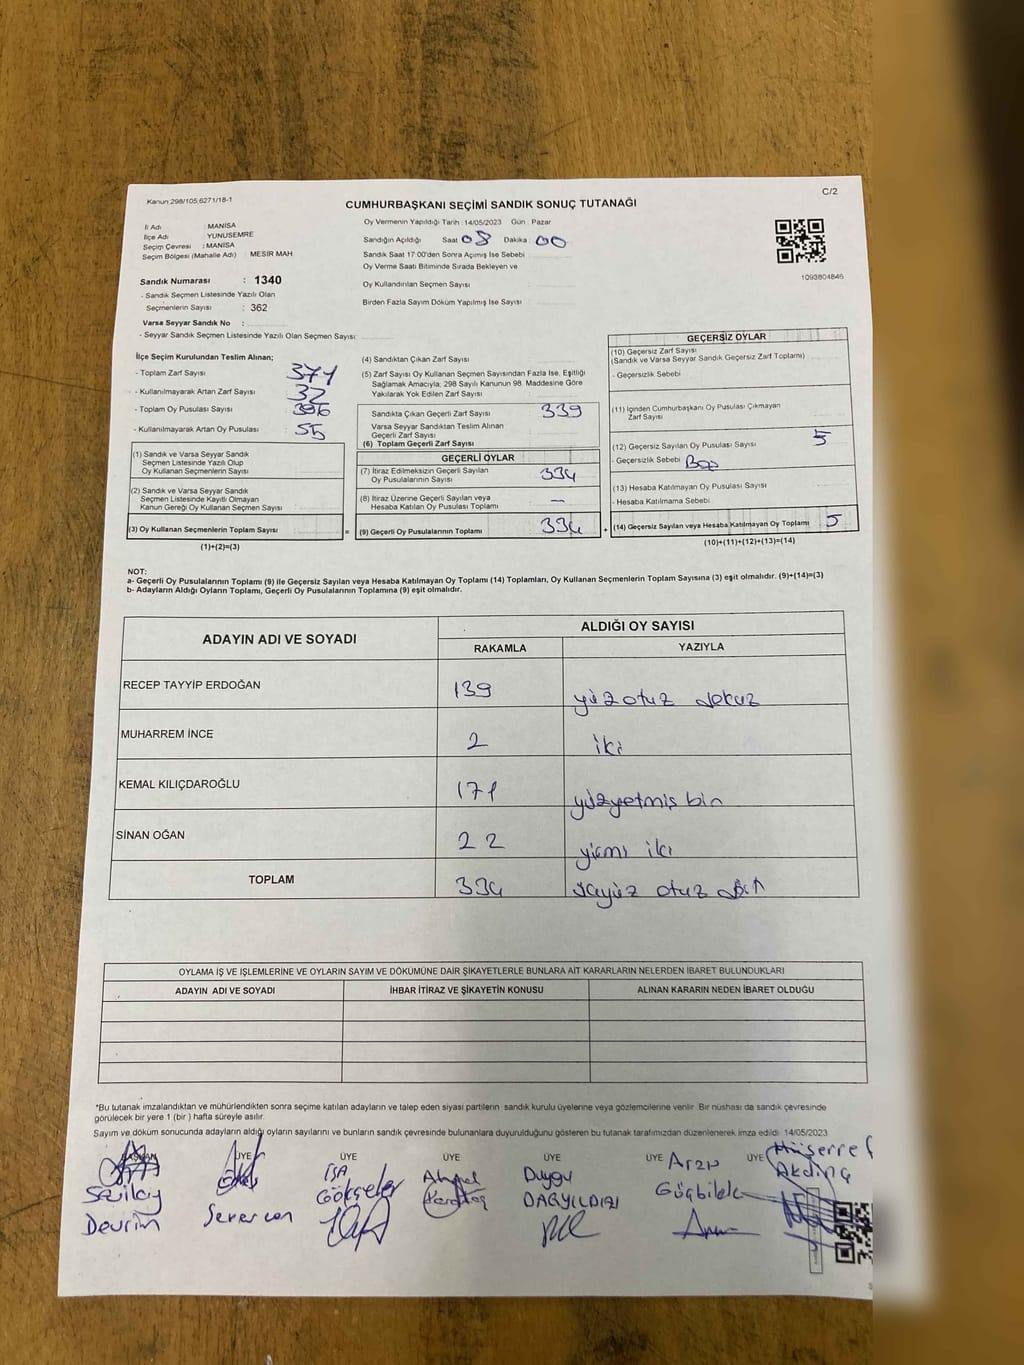 Kanun 298/105;6271/18-1
C/2
CUMHURBAŞKANI SEÇİMİ SANDIK SONUÇ TUTANAĞI
İl Adı : MANİSA
İlçe Adı : YUNUSEMRE
Seçim Çevresi : MANİSA
Seçim Bölgesi (Mahalle Adı) : MESİR MAH
Sandık Numarası : 1340
- Sandık Seçmen Listesinde Yazılı Olan
Seçmenlerin Sayısı : 362
Varsa Seyyar Sandık No :
- Seyyar Sandık Seçmen Listesinde Yazılı Olan Seçmen Sayısı:
Oy Vermenin Yapıldığı Tarih : 14/05/2023 Gün : Pazar
Sandığın Açıldığı Saat 08 Dakika : 00
Sandık Saat 17:00'den Sonra Açılmış İse Sebebi
Oy Verme Saati Bitiminde Sırada Bekleyen ve
Oy Kullandırılan Seçmen Sayısı
Birden Fazla Sayım Döküm Yapılmış İse Sayısı
1093804846
İlçe Seçim Kurulundan Teslim Alınan;
- Toplam Zarf Sayısı 371
- Kullanılmayarak Artan Zarf Sayısı 32
- Toplam Oy Pusulası Sayısı 396
- Kullanılmayarak Artan Oy Pusulası 55
(1) Sandık ve Varsa Seyyar Sandık
Seçmen Listesinde Yazılı Olup
Oy Kullanan Seçmenlerin Sayısı
(2) Sandık ve Varsa Seyyar Sandık
Seçmen Listesinde Kayıtlı Olmayan
Kanun Gereği Oy Kullanan Seçmen Sayısı
(3) Oy Kullanan Seçmenlerin Toplam Sayısı =
(1)+(2)=(3)
(4) Sandıktan Çıkan Zarf Sayısı
(5) Zarf Sayısı Oy Kullanan Seçmen Sayısından Fazla İse, Eşitliği
Sağlamak Amacıyla, 298 Sayılı Kanunun 98. Maddesine Göre
Yakılarak Yok Edilen Zarf Sayısı
Sandıkta Çıkan Geçerli Zarf Sayısı 339
Varsa Seyyar Sandıktan Teslim Alınan
Geçerli Zarf Sayısı
(6) Toplam Geçerli Zarf Sayısı
GEÇERLİ OYLAR
(7) İtiraz Edilmeksizin Geçerli Sayılan
Oy Pusulalarının Sayısı 334
(8) İtiraz Üzerine Geçerli Sayılan veya
Hesaba Katılan Oy Pusulası Toplamı —
(9) Geçerli Oy Pusulalarının Toplamı 334 +
GEÇERSİZ OYLAR
(10) Geçersiz Zarf Sayısı
(Sandık ve Varsa Seyyar Sandık Geçersiz Zarf Toplamı)
- Geçersizlik Sebebi
(11) İçinden Cumhurbaşkanı Oy Pusulası Çıkmayan
Zarf Sayısı
(12) Geçersiz Sayılan Oy Pusulası Sayısı 5
- Geçersizlik Sebebi Boş
(13) Hesaba Katılmayan Oy Pusulası Sayısı
- Hesaba Katılmama Sebebi
(14) Geçersiz Sayılan veya Hesaba Katılmayan Oy Toplamı 5
(10)+(11)+(12)+(13)=(14)
NOT:
a- Geçerli Oy Pusulalarının Toplamı (9) ile Geçersiz Sayılan veya Hesaba Katılmayan Oy Toplamı (14) Toplamları, Oy Kullanan Seçmenlerin Toplam Sayısına (3) eşit olmalıdır. (9)+(14)=(3)
b- Adayların Aldığı Oyların Toplamı, Geçerli Oy Pusulalarının Toplamına (9) eşit olmalıdır.
ADAYIN ADI VE SOYADI
ALDIĞI OY SAYISI
RAKAMLA YAZIYLA
RECEP TAYYİP ERDOĞAN 139 yüz otuz dokuz
MUHARREM İNCE 2 iki
KEMAL KILIÇDAROĞLU 171 yüzyetmiş bin
SİNAN OĞAN 22 yirmi iki
TOPLAM 334 üçyüz otuz
OYLAMA İŞ VE İŞLEMLERİNE VE OYLARIN SAYIM VE DÖKÜMÜNE DAİR ŞİKAYETLERLE BUNLARA AİT KARARLARIN NELERDEN İBARET BULUNDUKLARI
ADAYIN ADI VE SOYADI İHBAR İTİRAZ VE ŞİKAYETİN KONUSU ALINAN KARARIN NEDEN İBARET OLDUĞU
*Bu tutanak imzalandıktan ve mühürlendikten sonra seçime katılan adayların ve talep eden siyasi partilerin sandık kurulu üyelerine veya gözlemcilerine verilir. Bir nüshası da sandık çevresinde
görülecek bir yere 1 (bir) hafta süreyle asılır.
Sayım ve döküm sonucunda adayların aldığı oyların sayılarını ve bunların sandık çevresinde bulunanlara duyurulduğunu gösteren bu tutanak tarafımızdan düzenlenerek imza edildi. 14/05/2023
BAŞKAN ÜYE ÜYE ÜYE ÜYE ÜYE ÜYE
Devrim
İSA Gökçeler
Ahmet Karataş
Duygu DAĞYILDIZI
Arzu
Akdinç